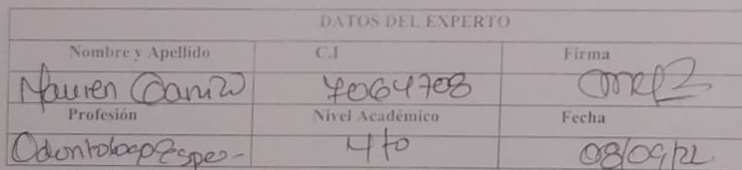 DATOS DEL EXPERTO
Nombre y Apellido C.I Firma
Mauren 7064708
Profesión Nivel Académico Fecha
4to 08/09/22